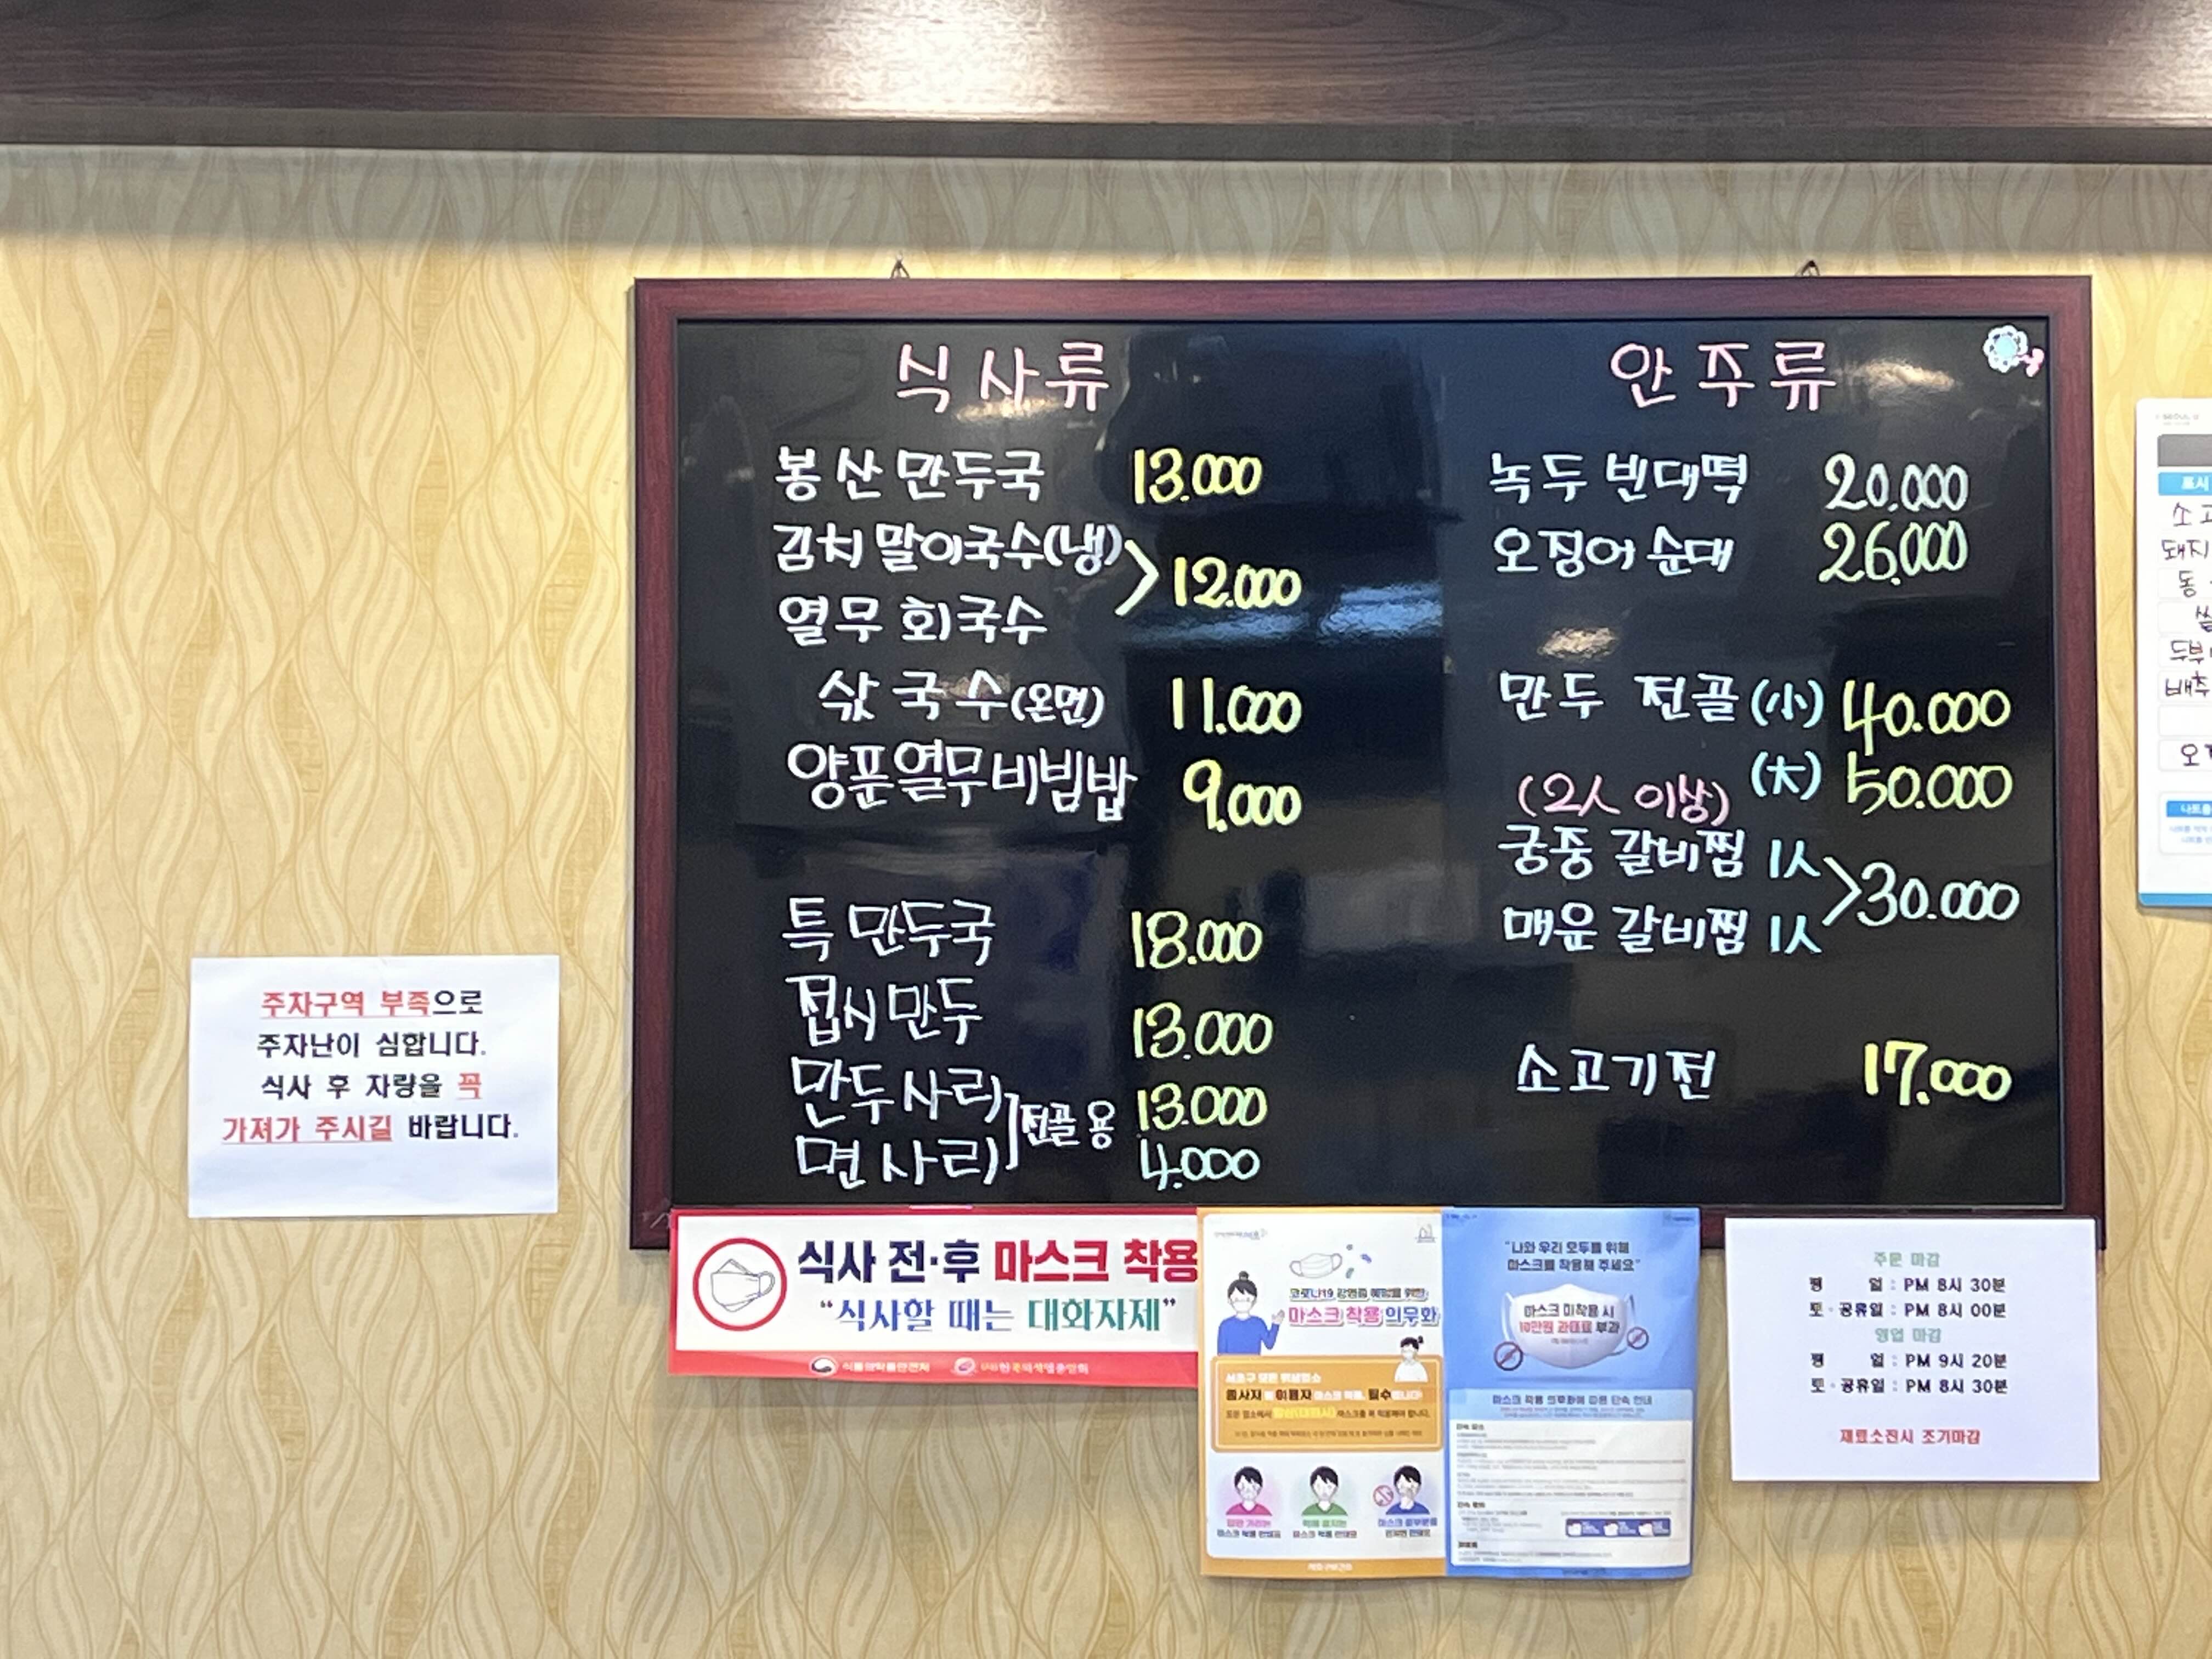 식사류
봉산만두국 13.000
김치말이국수(냉)
열무 회국수
> 12.000
삯국수(온면) 11.000
양푼열무비빔밥 9.000
특 만두국 18.000
접시만두 13.000
만두사리 13.000
면사리 4.000
]전골용
안주류
녹두 빈대떡 20.000
오징어 순대 26.000
만두 전골 (小) 40.000
(大) 50.000
(2人 이상)
궁중 갈비찜 1人
매운 갈비찜 1人
> 30.000
소고기전 17.000
주차구역 부족으로
주차난이 심합니다.
식사 후 차량을 꼭
가져가 주시길 바랍니다.
식사 전·후 마스크 착용
“식사할 때는 대화자제”
식품의약품안전처
코로나19 감염증 예방을 위한
마스크 착용 의무화
서초구 모든 위생업소
종사자 및 이용자 마스크 착용, 필수입니다!
“나와 우리 모두를 위해
마스크를 착용해 주세요”
마스크 미착용 시
10만원 과태료 부과
마스크 착용 의무화에 따른 단속 안내
주문 마감
평 일 : PM 8시 30분
토·공휴일 : PM 8시 00분
영업 마감
평 일 : PM 9시 20분
토·공휴일 : PM 8시 30분
재료소진시 조기마감
표시
돼지
두부
배추